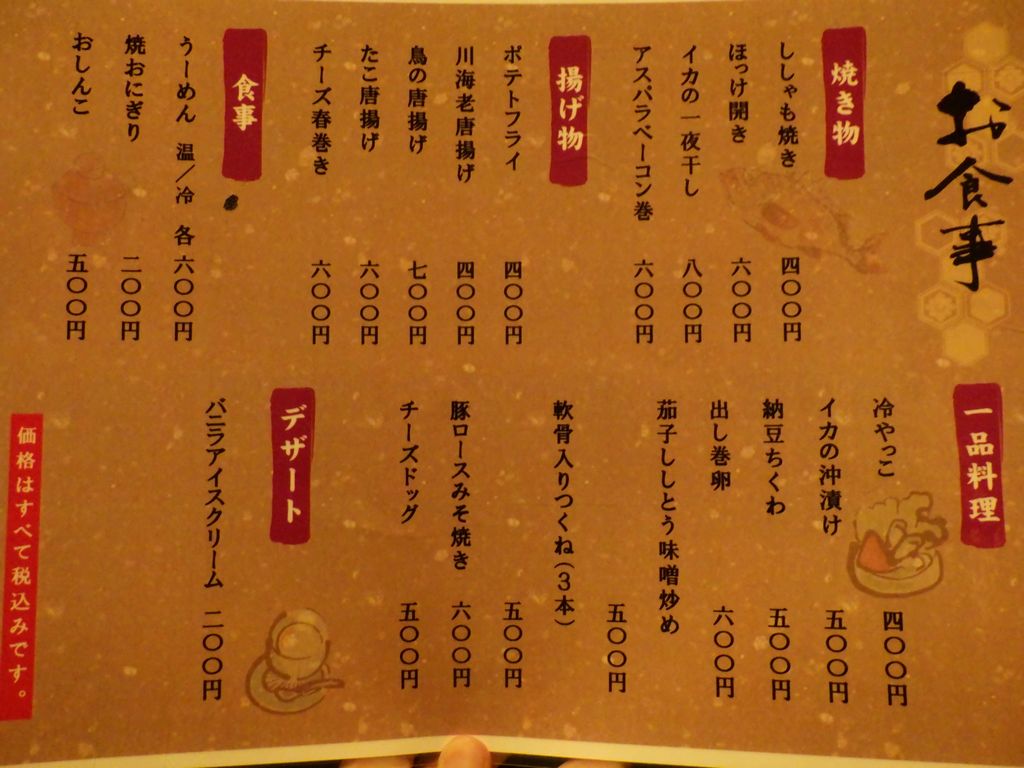 お食事
焼き物
ししゃも焼き 四〇〇円
ほっけ開き 六〇〇円
イカの一夜干し 八〇〇円
アスパラベーコン巻 六〇〇円
揚げ物
ポテトフライ 四〇〇円
川海老唐揚げ 四〇〇円
鳥の唐揚げ 七〇〇円
たこ唐揚げ 六〇〇円
チーズ春巻き 六〇〇円
食事
うーめん 温/冷 各六〇〇円
焼おにぎり 二〇〇円
おしんこ 五〇〇円
一品料理
冷やっこ 四〇〇円
イカの沖漬け 五〇〇円
納豆ちくわ 五〇〇円
出し巻卵 六〇〇円
茄子ししとう味噌炒め
五〇〇円
軟骨入りつくね(3本)
五〇〇円
豚ロースみそ焼き 六〇〇円
チーズドッグ 五〇〇円
デザート
バニラアイスクリーム 二〇〇円
価格はすべて税込みです。